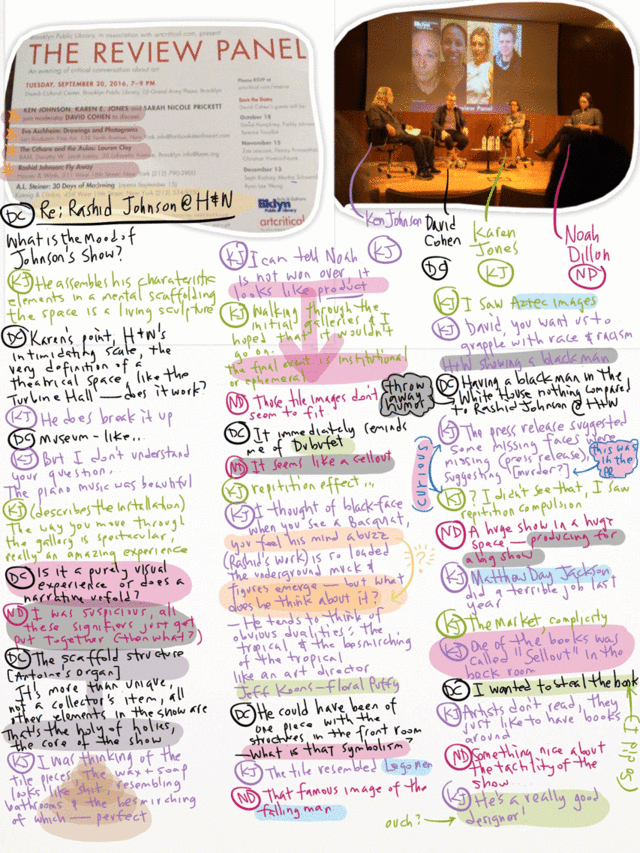 Brooklyn Public Library, in association with artcritical.com, present
THE REVIEW PANEL
An evening of critical conversation about art
TUESDAY, SEPTEMBER 20, 2016, 7–9 PM
Dweck Cultural Center, Brooklyn Public Library, 10 Grand Army Plaza, Brooklyn
KEN JOHNSON, KAREN E. JONES and SARAH NICOLE PRICKETT
join moderator DAVID COHEN to discuss
Eva
Drawings and Photograms
The Cithara and the Aulos: Lauren Clay
Rashid Johnson: Fly Away
A.L. Steiner: 30 Days of Mo)rning
Please RSVP at
Save the Dates
October 18
November 15
December 13
Bklyn
Public
Library
artcritical
Bklyn
Review Panel
Ken Johnson
David
Cohen
DC
Karen
Jones
KJ
Noah
Dillon
ND
DC Re: Rashid Johnson @ H&N
What is the Mood of
Johnson's Show?
KJ He assembles his charateristic
elements in a mental scaffolding
the space is a living sculpture
DC Karen's point, H+N's
intimidating scale, the
very definition of a
theatrical space, like the
Turbine Hall — does it work?
KJ He does break it up
DC Museum-like...
KJ But I don't understand
your question...
The piano music was beautiful
KJ (describes the installation)
The way you move through
the gallery is spectacular,
really an amazing experience
DC Is it a purely visual
experience or does a
narrative unfold?
ND I was suspicious, all
these signifiers just get
put together (then what?)
DC The scaffold structure
[Antoine's organ]
It's more than unique,
not a collector's item, all
other elements in the show are
That's the holy of holies,
the core of the show
KJ I was thinking of the
tile pieces. The wax + soap
looks like shit, resembling
bathrooms & the besmirching
of which — perfect
KJ I can tell Noah KJ
is not won over, it
looks like product
KJ Walking through the
initial galleries & I
hoped that it wouldn't
go on.
the final event is institutional
or ephemeral
ND Those tile images don't
seem to fit
DC It immediately reminds
me of Dubufet
ND It seems like a sellout
KJ repitition effect...
KJ I thought of black-face
when you see a Basquat,
you feel his mind abuzz
(Rashid's work) is so loaded
the underground muck &
figures emerge — but what
does he think about it?
— He tends to think of
obvious dualities: the
tropical, & the besmirching
of the tropical
like an art director
Jeff Koons—floral Puffy
DC He could have been of
one piece with the
structures in the front room
— What is that symbolism?
KJ The tile resembled Lego men
ND That famous image of the
falling man
KJ I saw Aztec images
KJ David, you want us to
grapple with race & racism
H+N showing a black man
throw
away
humor
DC Having a black man in the
White House nothing compared
to Rashid Johnson @ H&N
KJ The press release suggested
some missing faces were
missing (press release),
suggesting [murder?]
this was
in the
PR
curious
KJ ? I didn't see that, I saw
repitition compulsion
ND A huge show in a huge
space, — producing for
a big show
KJ Matthew Day Jackson
did a terrible job last
year
KJ The Market complicity
KJ One of the books was
called "Sellout" in the
back room
DC I wanted to steal the book
KJ Artists don't read, they
just like to have books
around
ND Something nice about
the tactility of the
show...
KJ He's a really good
designer!
ouch?